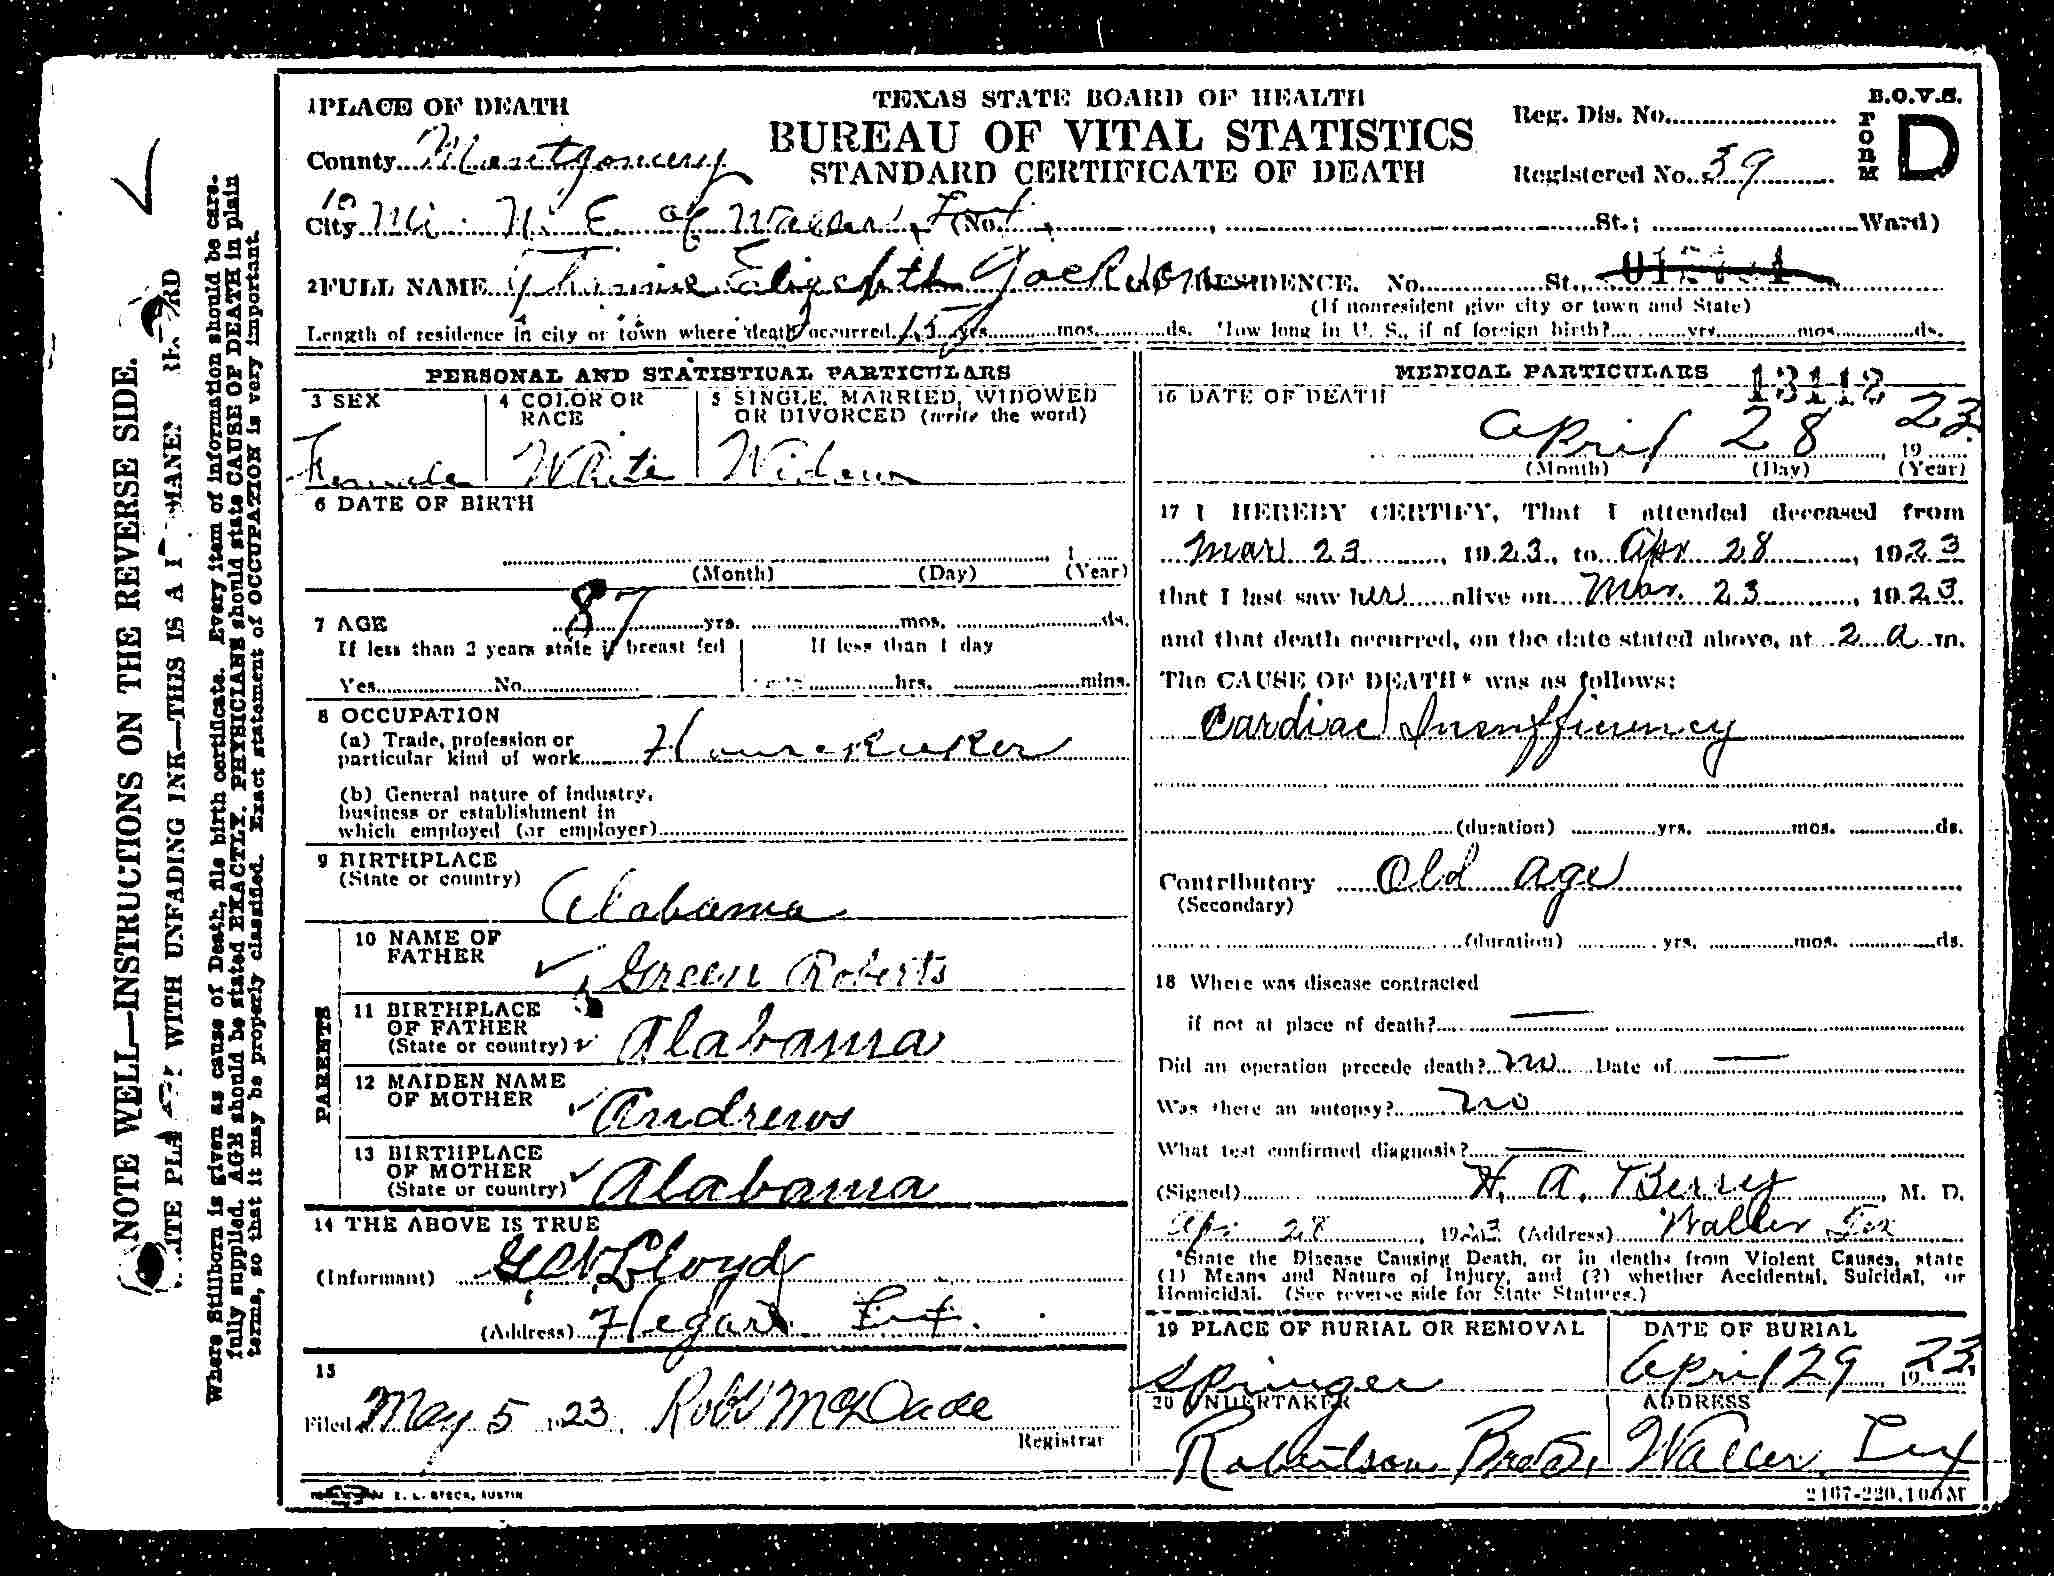 1 PLACE OF DEATH
TEXAS STATE BOARD OF HEALTH
BUREAU OF VITAL STATISTICS
STANDARD CERTIFICATE OF DEATH
Reg. Dis. No.
Registered No. 39
B.O.V.S.
FORM D
County Montgomery
10
City Mi. N. E. of Waller, Tex. (No. St.; Ward)
2 FULL NAME Elizebth Jackson RESIDENCE. No. St.,
(If nonresident give city or town and State)
Length of residence in city or town where death occurred 15 yrs. mos. ds. How long in U. S., if of foreign birth? yrs. mos. ds.
PERSONAL AND STATISTICAL PARTICULARS
3 SEX
Female
4 COLOR OR RACE
White
5 SINGLE, MARRIED, WIDOWED
OR DIVORCED (write the word)
Widow
6 DATE OF BIRTH
, 1
(Month) (Day) (Year)
7 AGE 87 yrs. mos. ds.
If less than 2 years state if breast fed
Yes No
If less than 1 day
hrs. mins.
8 OCCUPATION
(a) Trade, profession or
particular kind of work Housekeeker
(b) General nature of industry,
business or establishment in
which employed (or employer)
9 BIRTHPLACE
(State or country) Alabama
PARENTS
10 NAME OF
FATHER Green Roberts
11 BIRTHPLACE
OF FATHER
(State or country) Alabama
12 MAIDEN NAME
OF MOTHER Andrews
13 BIRTHPLACE
OF MOTHER
(State or country) Alabama
14 THE ABOVE IS TRUE
(Informant) G.W. Lloyd
(Address) Hegar Tex.
15
Filed May 5 1923, Robt McDade
Registrar
MEDICAL PARTICULARS 13112
16 DATE OF DEATH
April 28, 19 23
(Month) (Day) (Year)
17 I HEREBY CERTIFY, That I attended deceased from
Mar 23, 1923, to Apr 28, 1923
that I last saw her alive on Mar. 23, 1923.
and that death occurred, on the date stated above, at 2 a m.
The CAUSE OF DEATH* was as follows:
Cardiac Insufficiency
(duration) yrs. mos. ds.
Contributory Old age
(Secondary)
(duration) yrs. mos. ds.
18 Where was disease contracted
if not at place of death? —
Did an operation precede death? no Date of —
Was there an autopsy? no
What test confirmed diagnosis? —
(Signed) H. A. Berry, M. D.
Ap. 28, 1923 (Address) Waller Tex
*State the Disease Causing Death, or in deaths from Violent Causes, state
(1) Means and Nature of Injury, and (2) whether Accidental, Suicidal, or
Homicidal. (See reverse side for State Statutes.)
19 PLACE OF BURIAL OR REMOVAL
Springer
DATE OF BURIAL
April 29, 19 23.
20 UNDERTAKER
Robertson Bros.
ADDRESS
Waller, Tex
E. L. STECK, AUSTIN
2167-220,100M
NOTE WELL—INSTRUCTIONS ON THE REVERSE SIDE.
WITH UNFADING INK—THIS IS A
Where Stillborn is given as cause of Death, file birth certificate. Every item of information should be care-
fully supplied. AGE should be stated EXACTLY. PHYSICIANS should state CAUSE OF DEATH in plain
terms, so that it may be properly classified. Exact statement of OCCUPATION is very important.